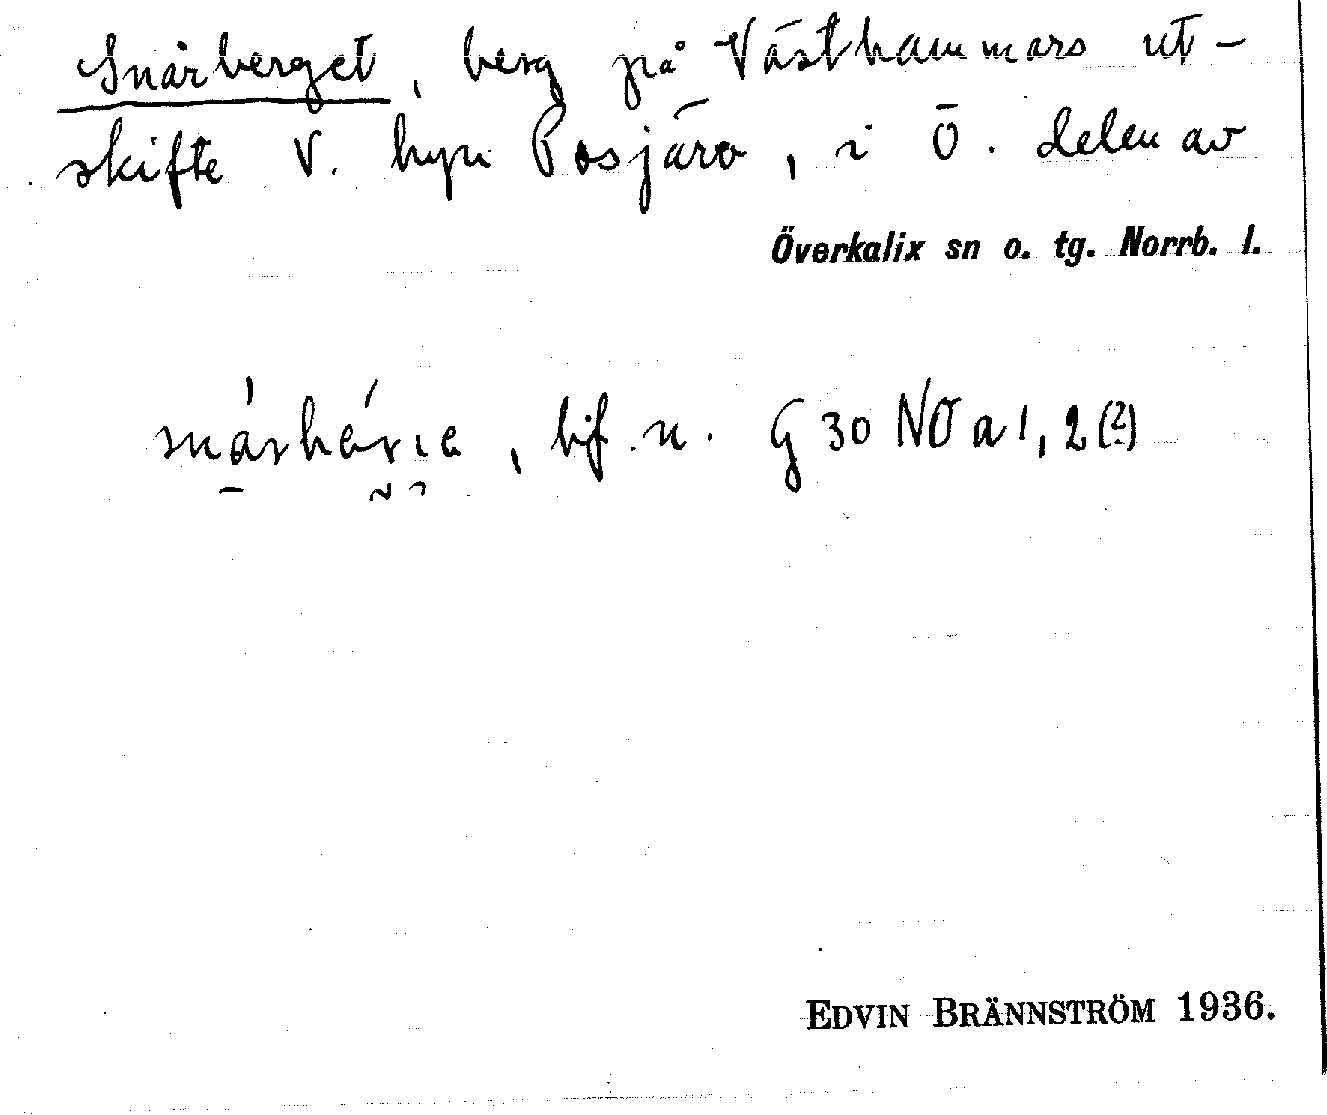 Snårberget, berg på Västhammars ut-
skifte V. byn Posjärv, i Ö. delen av
Överkalix sn o. tg. Norrb. l.
bf. n. G 30 NO a 1, 2 (?)
EDVIN BRÄNNSTRÖM 1936.